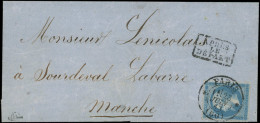 Monsieur Lenicolai
APRÈS
LE
DÉPART
à Sourdeval Labarre
PARIS
Manche